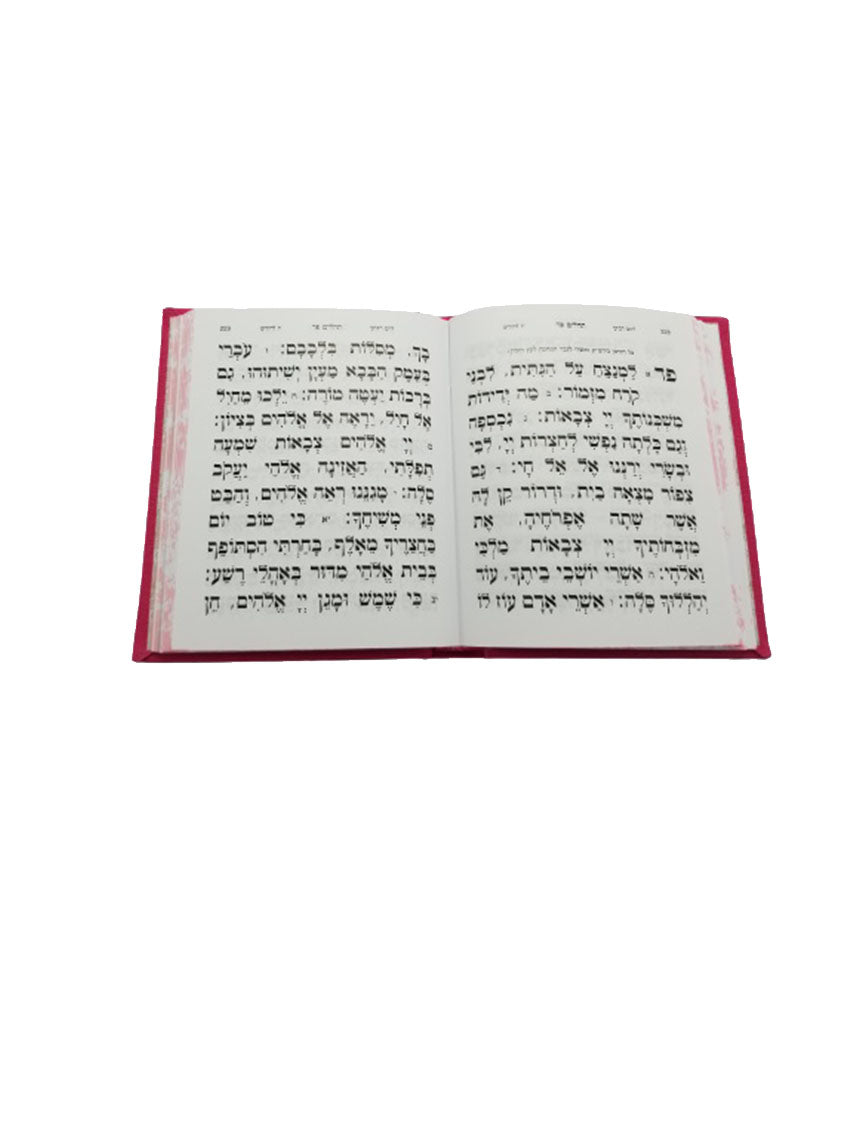 תהלים פד
פד א לַמְנַצֵּחַ עַל הַגִּתִּית, לִבְנֵי
קֹרַח מִזְמוֹר: ב מַה יְּדִידוֹת
מִשְׁכְּנוֹתֶיךָ יְיָ צְבָאוֹת: ג נִכְסְפָה
וְגַם כָּלְתָה נַפְשִׁי לְחַצְרוֹת יְיָ, לִבִּי
וּבְשָׂרִי יְרַנְּנוּ אֶל אֵל חָי: ד גַּם
צִפּוֹר מָצְאָה בַיִת, וּדְרוֹר קֵן לָהּ
אֲשֶׁר שָׁתָה אֶפְרֹחֶיהָ, אֶת
מִזְבְּחוֹתֶיךָ יְיָ צְבָאוֹת מַלְכִּי
וֵאלֹהָי: ה אַשְׁרֵי יוֹשְׁבֵי בֵיתֶךָ, עוֹד
יְהַלְלוּךָ סֶּלָה: ו אַשְׁרֵי אָדָם עוֹז לוֹ
תהלים פד
בָךְ, מְסִלּוֹת בִּלְבָבָם: ז עֹבְרֵי
בְּעֵמֶק הַבָּכָא מַעְיָן יְשִׁיתוּהוּ, גַּם
בְּרָכוֹת יַעְטֶה מוֹרֶה: ח יֵלְכוּ מֵחַיִל
אֶל חָיִל, יֵרָאֶה אֶל אֱלֹהִים בְּצִיּוֹן:
ט יְיָ אֱלֹהִים צְבָאוֹת שִׁמְעָה
תְפִלָּתִי, הַאֲזִינָה אֱלֹהֵי יַעֲקֹב
סֶלָה: י מָגִנֵּנוּ רְאֵה אֱלֹהִים, וְהַבֵּט
פְּנֵי מְשִׁיחֶךָ: יא כִּי טוֹב יוֹם
בַּחֲצֵרֶיךָ מֵאָלֶף, בָּחַרְתִּי הִסְתּוֹפֵף
בְּבֵית אֱלֹהַי מִדּוּר בְּאָהֳלֵי רֶשַׁע:
יב כִּי שֶׁמֶשׁ וּמָגֵן יְיָ אֱלֹהִים, חֵן